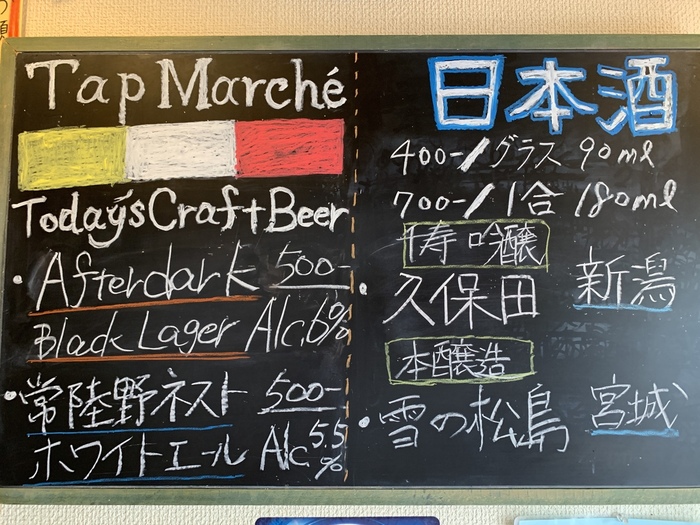 Tap Marché
Today's Craft Beer
・Afterdark 500-
Black Lager Alc.6%
・常陸野ネスト 500-
ホワイトエール Alc 5.5%
日本酒
400-/グラス 90ml
700-/1合 180ml
千寿 吟醸
・久保田 新潟
本醸造
・雪の松島 宮城